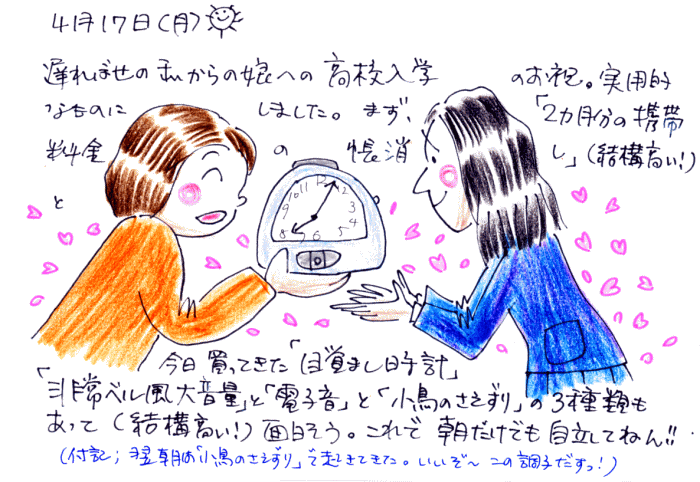 4月17日(月)
遅ればせの私からの娘への高校入学のお祝。実用的
なものにしました。まず、「2カ月分の携帯
料金の帳消し」(結構高い!)
と
11 12 1
10 2
9 3
8 4
7 6 5
今日買ってきた「目覚まし時計」
「非常ベル風大音量」と「電子音」と「小鳥のさえずり」の3種類も
あって(結構高い!)面白そう。これで朝だけでも自立してねん!!
(付記;翌朝は「小鳥のさえずり」で起きてきた。いいぞ〜この調子だすっ!)